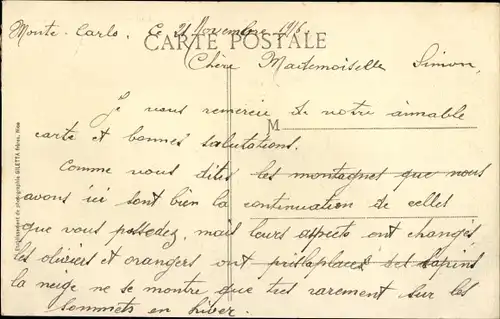 Monte-Carlo. Ce 21 Novembre 1916.
CARTE POSTALE
Chère Mademoiselle Simon,
M
Je vous remercie de notre aimable
carte et bonnes salutations.
Comme vous dites les montagnes que nous
avons ici sont bien la continuation de celles
que vous possedez, mais leurs aspects ont changés
les oliviers et orangers ont pris la place des sapins
la neige ne se montre que tres rarement sur les
sommets en hiver.
Etablissement de photographie GILETTA frères, Nice